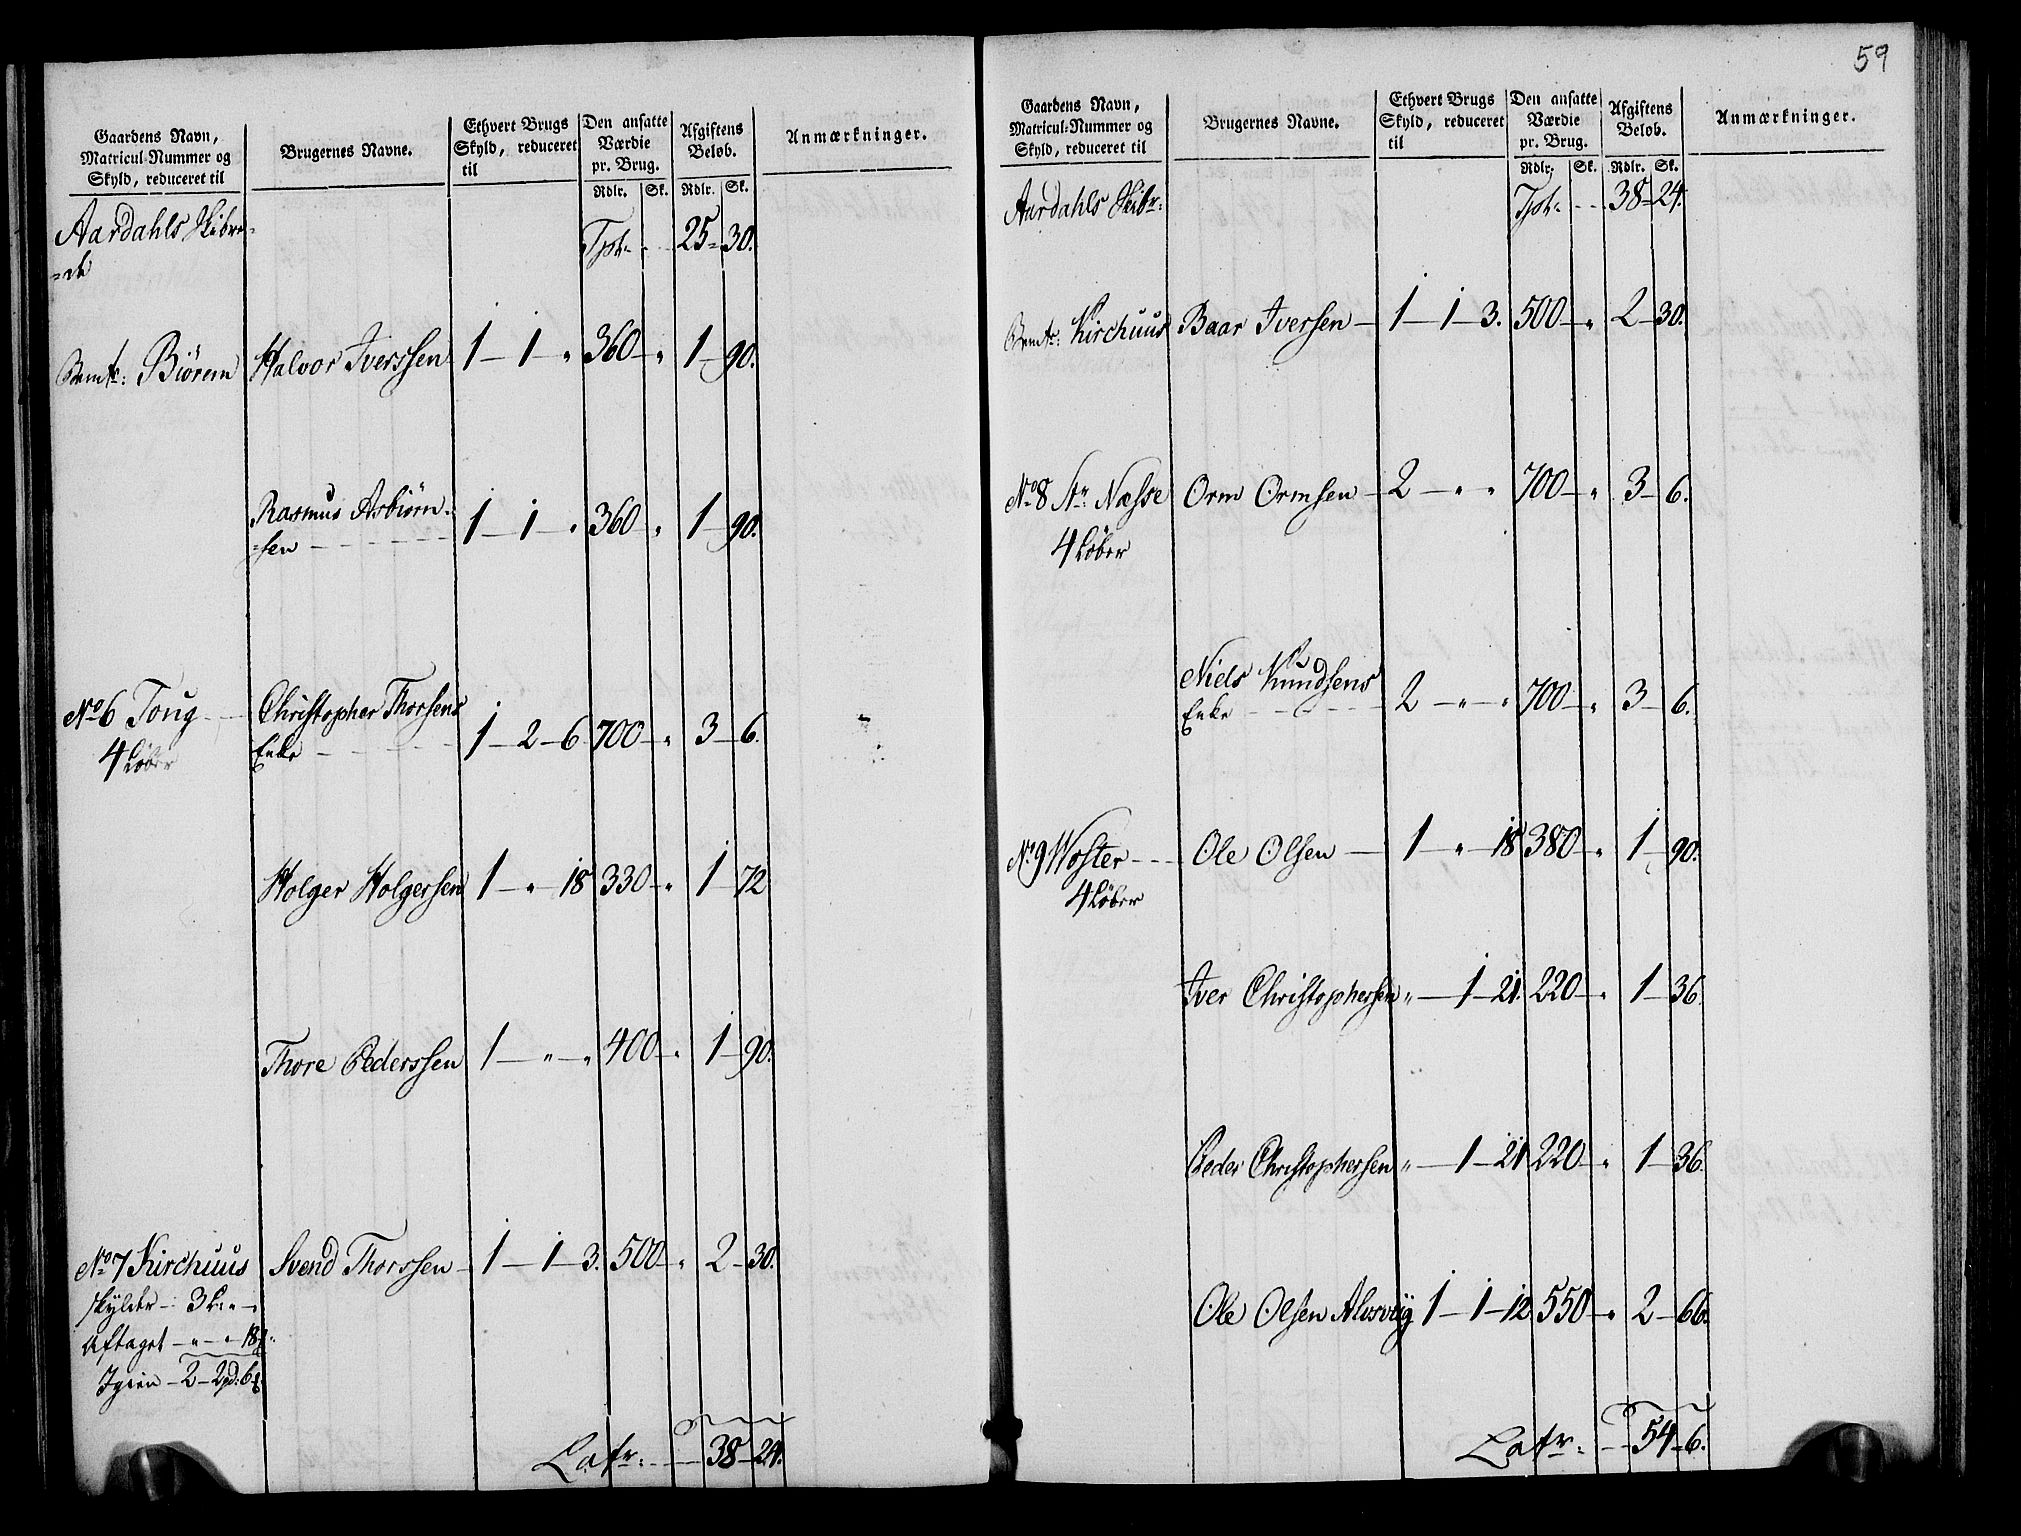 Gaardens Navn,
Matricul-Nummer og
Skyld, reduceret til
Brugernes Navne.
Ethvert Brugs
Skyld, reduceret
til
Den ansatte
Værdie
pr. Brug.
Rdlr. Sk.
Afgiftens
Beløb.
Rdlr. Sk.
Anmærkninger.
Aardahls Skibre-
=de
Tpt. 25 30.
Bemte: Biörem Halvor Iverssen 1 - 1 " 360 " 1 - 90.
Rasmus Asbiörn-
=sen 1 - 1 " 360 " 1 - 90.
No 6 Toug Christopher Thorsens
4 Löber Enke 1 - 2 - 6 700 " 3 - 6.
Holger Holgersen 1 - " - 18 330 " 1 - 72
Thore Pederssen 1 - " - " 400 " 1 - 90.
No 7 Kirchuus Svend Thorssen 1 - 1 - 3. 500 " 2 - 30.
skylder 3 L: " -
Aftaget - " - " 18
Igien - 2 - 2pd: 6
Latr. 38 - 24.
59
Gaardens Navn,
Matricul-Nummer og
Skyld, reduceret til
Brugernes Navne.
Ethvert Brugs
Skyld, reduceret
til
Den ansatte
Værdie
pr. Brug.
Rdlr. Sk.
Afgiftens
Beløb.
Rdlr. Sk.
Anmærkninger.
Aardahls Skibr: Tpt. 38 - 24.
Bemte: Kirchuus Baar Iversen 1 - 1 - 3. 500 " 2 - 30.
No 8 Nr. Næsse Orm Ormsen 2 - " " 700 " 3 - 6.
4 Löber
Niels Knudsens
Enke 2 - " - " 700 " 3 - 6.
No 9 Woster Ole Olsen 1 - " - 18 380 " 1 - 90.
4 Löber
Iver Christophersen " - 1 - 21. 220 " 1 - 36
Peder Christophersen " - 1 - 21 220 " 1 - 36.
Ole Olsen Alvsvøg 1 - 1 - 12 550 " 2 - 66.
Latr. 54 - 6.